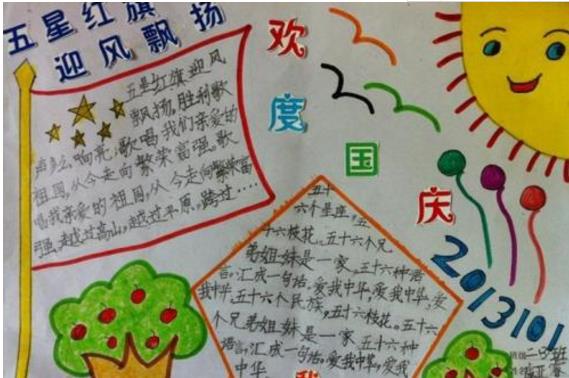 五星红旗
迎风飘扬
五星红旗迎风
飘扬,胜利歌
声多么响亮,歌唱我们亲爱的
祖国,从今走向繁荣富强。歌
唱我亲爱的祖国,从今走向繁荣富
强,越过高山,越过平原,跨过……
欢
度
国
庆
2013101
五十
六个星座,五
十六枝花,五十六个兄
弟姐妹是一家,五十六种语
言,汇成一句话,爱我中华,爱我中华,爱
我中华,五十六个民族,五十六枝花。五十六
个兄弟姐妹是一家五十六种
语言,汇成一句话,爱我中华,爱我
中华
我
二(3)班